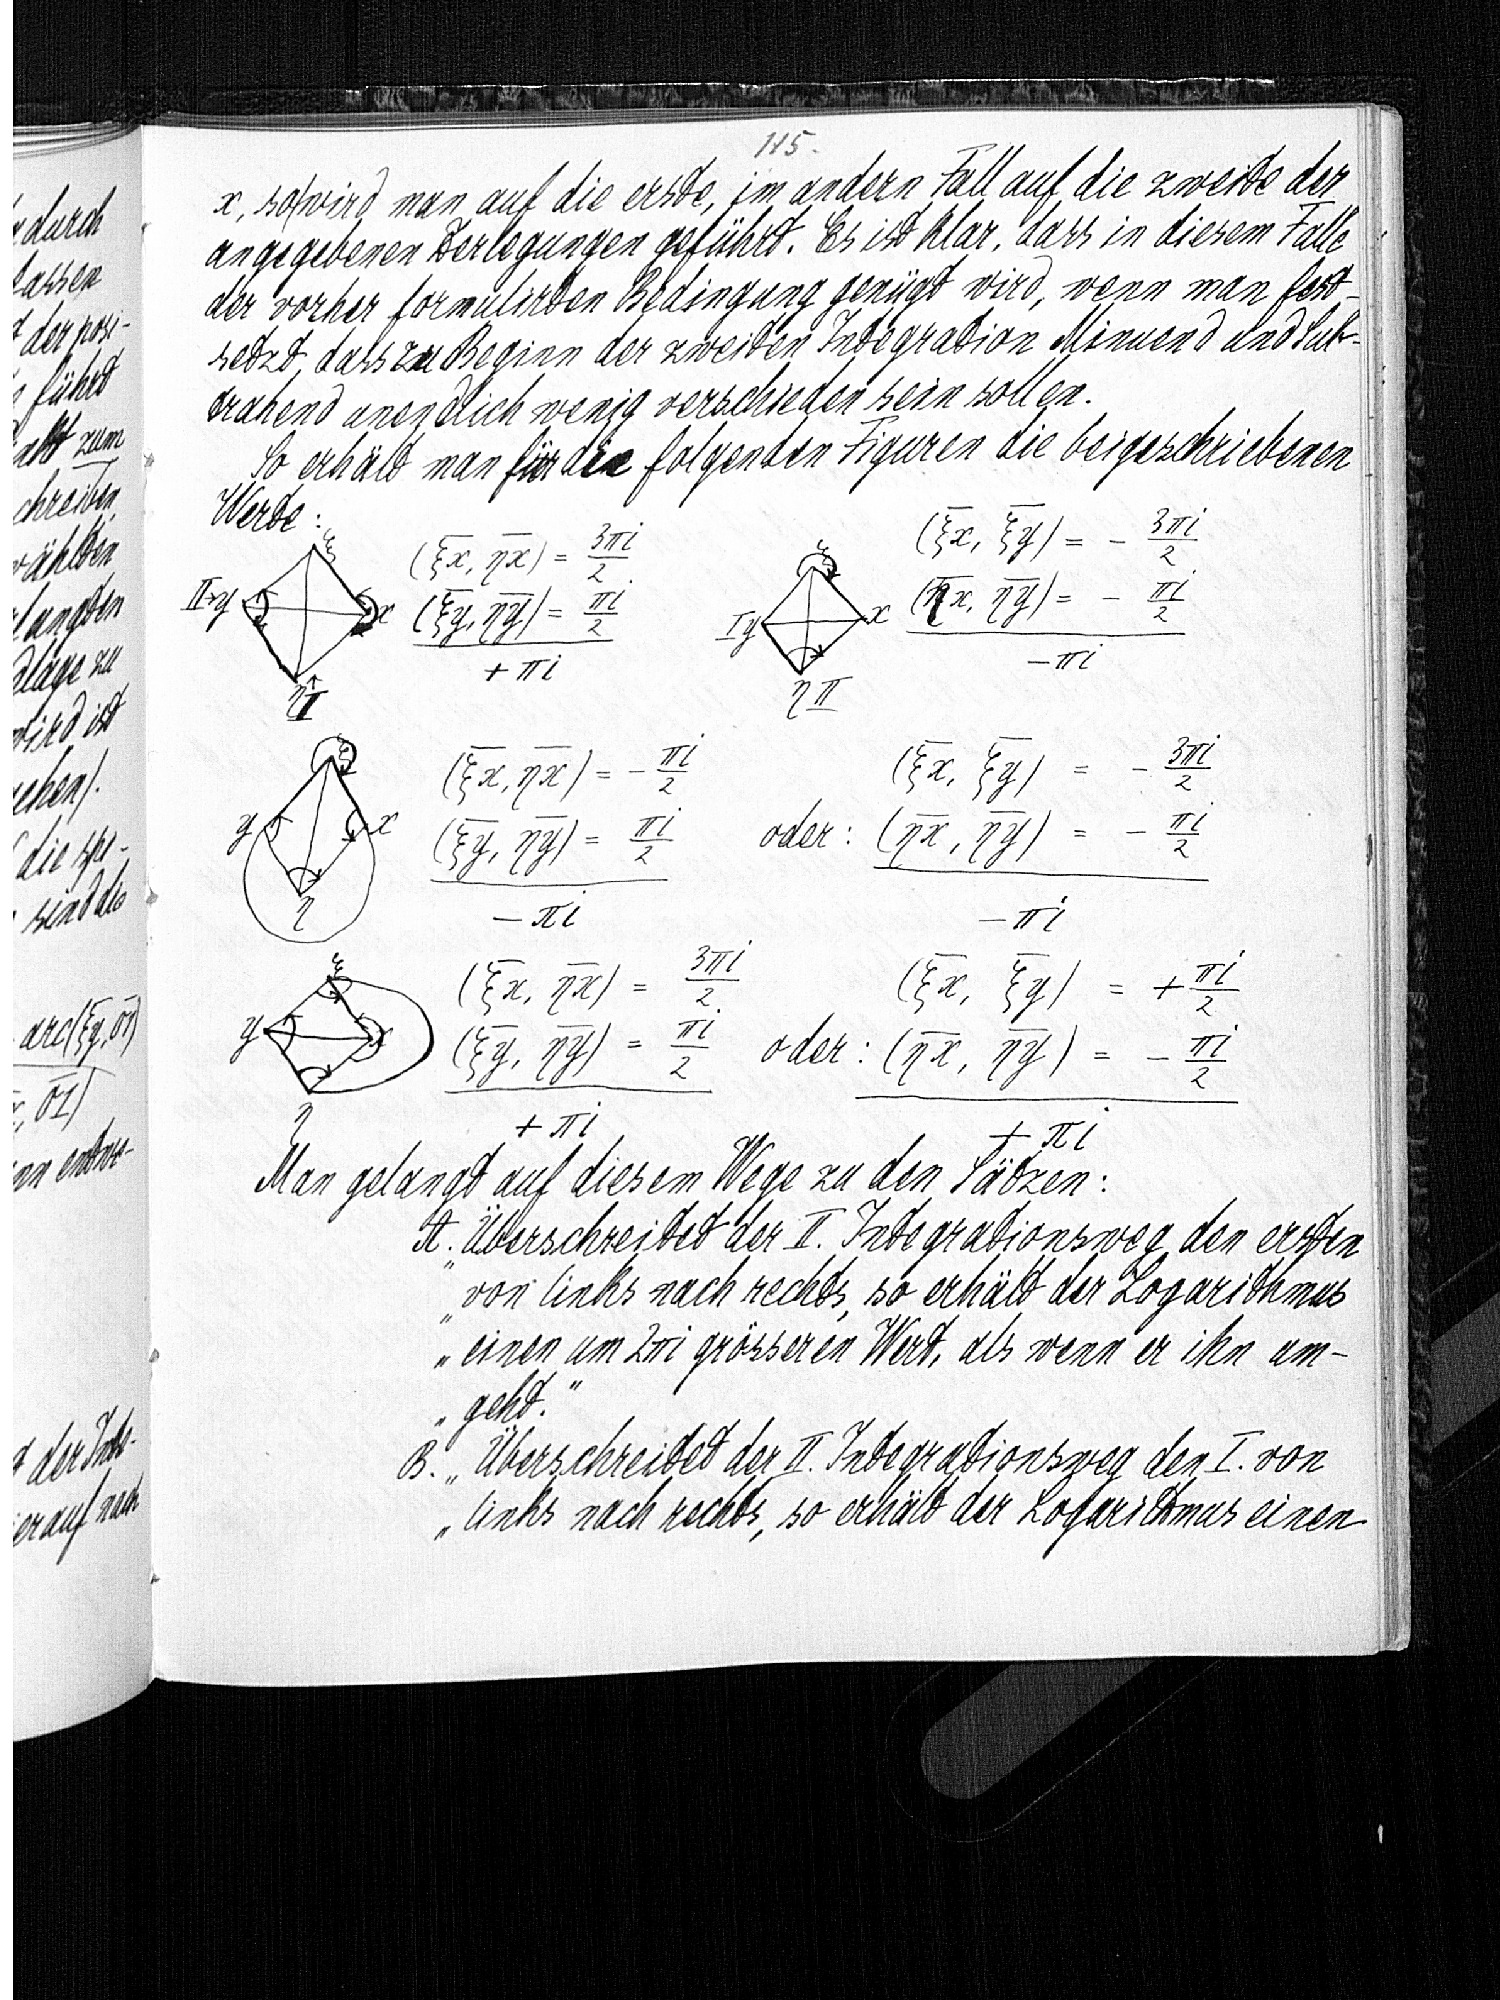 115.
x, so wird man auf die erste, im andern Fall auf die zweite der
angegebenen Zerlegungen geführt. Es ist klar, dass in diesem Falle
der vorher formulirten Bedingung genügt wird, wenn man fest-
setzt, dass zu Beginn der zweiten Integration Minuend und Sub-
trahend unendlich wenig verschieden sein sollen.
So erhält man für die folgenden Figuren die beigeschriebenen
Werte:
ξ
II y x
η I
(ξ̅x̅, η̅x̅) = 3πi/2
(ξ̅y̅, η̅y̅) = πi/2
+ πi
ξ
I y x
η II
(ξ̅x̅, ξ̅y̅) = - 3πi/2
(η̅x̅, η̅y̅) = - πi/2
- πi
ξ
y x
η
(ξ̅x̅, η̅x̅) = - πi/2
(ξ̅y̅, η̅y̅) = πi/2
- πi
oder:
(ξ̅x̅, ξ̅y̅) = - 3πi/2
(η̅x̅, η̅y̅) = - πi/2
- πi
ξ
y x
η
(ξ̅x̅, η̅x̅) = 3πi/2
(ξ̅y̅, η̅y̅) = πi/2
+ πi
oder:
(ξ̅x̅, ξ̅y̅) = + πi/2
(η̅x̅, η̅y̅) = - πi/2
+ πi
Man gelangt auf diesem Wege zu den Sätzen:
A. Überschreitet der II. Integrationsweg den ersten
„ von links nach rechts, so erhält der Logarithmus
„ einen um 2πi grösseren Wert, als wenn er ihn um-
„ geht."
B. „ Überschreitet der II. Integrationsweg den I. von
„ links nach rechts, so erhält der Logarithmus einen
durch
lassen
der posi-
führt
zum
schreiben,
wählten
langten
zu
wird ist
sehen).
die spe-
sind die
arc(ξ̅y̅, 0̅1̅)
x̅, 0̅1̅)
entwe-
der Inte-
erauf nach